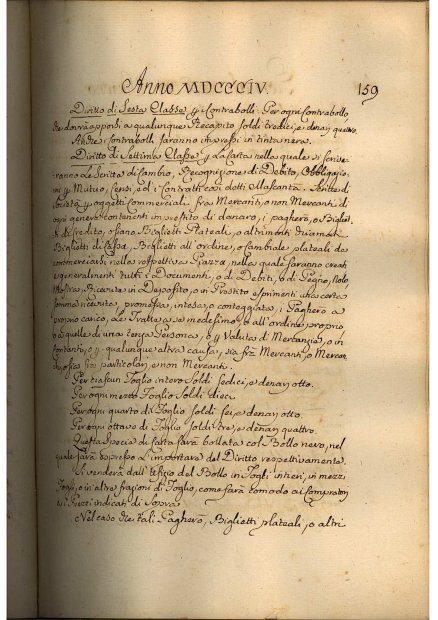 Anno MDCCCIV.
159
Diritto di Sesta Classe p i Contrabolli. Per ogni Contrabollo,
che dovrà apporsi a qualunque Recapito soldi tredici, e denari quattro.
Anche i Contrabolli saranno impressi in tinta nera.
Diritto di Settima Classe p la Carta nella quale si scrive-
ranno Le Lettere di Cambio, Recognizione di Debito, Obbligazio-
ni p Mutuo, Censi, ed i Contratti così detti Scritte di
Società p oggetti Commerciali fra Mercanti, o non Mercanti di
ogni genere contenenti imprestito di danaro, i pagherò, o Bigliet-
ti di Credito, o siano Biglietti Plateali, o altrimenti chiamati
Biglietti di Cassa, Biglietti all'ordine, o Cambiale plateali da
commerciarsi nella rispettiva Piazza, nella quale saranno creati
e generalmente tutti i Documenti, o di Debiti, o di Pegno,
Ricevuta in Deposito, o in Prestito esprimenti una certa
somma ricevuta, promessa, intesa, o conteggiata, i Pagherò a
proprio carico, Le Tratte a se medesimo, o all'ordine proprio,
o a quelle di una terza Persona, o p Valuta di Mercanzia, o in
Contanti, o p qualunque altra causa, sia frà Mercanti, o Mercan-
fra particolari, e non Mercanti.
Per ciascun Foglio intero Soldi Sedici, e denari otto.
Per ogni mezzo Foglio Soldi dieci
Per ogni quarto di Foglio Soldi sei, e denari otto.
Per ogni ottavo di Foglio Soldi tre, e denari quattro.
Questa specie di Carta sarà bollata col Bollo nero, nel
quale sarà espresso l'Importare del Diritto respettivamente.
Si venderà dall'ufizio del Bollo in Fogli intieri, in mezzi
Fogli, o in altre frazioni di Foglio, come sarà comodo ai Compratori
ai Prezzi indicati di Sopra
Nel caso che tali Pagherò, Biglietti plateali, o altri